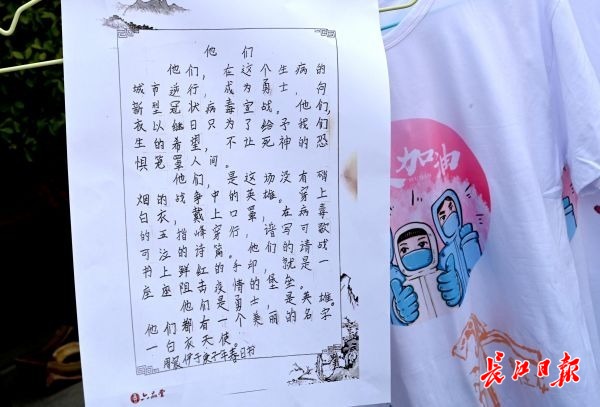 他们
他们，在这个生病的
城市逆行，成为勇士，向
新型冠状病毒宣战，他们，
衣以继日只为了给予我们
生的希望，不让死神的恐
惧笼罩人间。
他们，是这场没有硝
烟的战争中的英雄。穿上
白衣，戴上口罩，在病毒
的五指峰穿行，谱写可歌
可泣的诗篇。他们的请战
书上鲜红的手印，就是一
座座阻击疫情的堡垒。
他们是勇士，是英雄。
他们都有一个美丽的名字
一白衣天使。
于庚子年春日书
六品堂
加油
长江日报